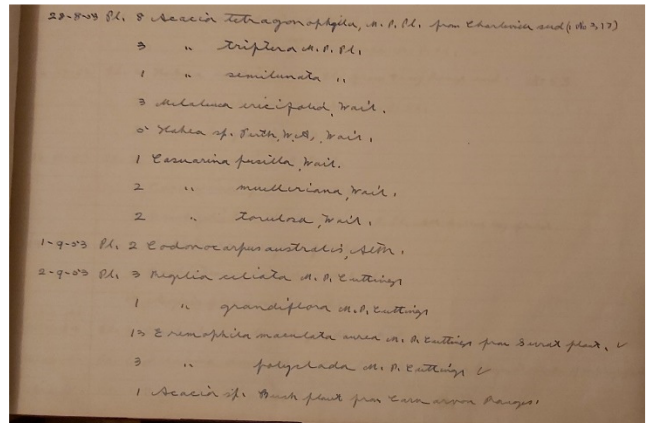 28-8-53 Pl. 8 Acacia tetragonophylla, M. P. Pl. from Charleville seed (No 3,17)
3 " triptera M. P. Pl.
1 " semilunata "
3 Melaleuca ericifolia, Wait.
5 Hakea sp. Perth, W.A., Wait.
1 Casuarina pusilla, Wait.
2 " muelleriana, Wait.
2 " torulosa, Wait.
1-9-53 Pl. 2 Codonocarpus australis,
2-9-53 Pl. 3 Regelia ciliata M. P. Cuttings
1 " grandiflora M. P. Cuttings
13 Eremophila maculata aurea M. P. Cuttings from Surat plant. ✓
3 " polyclada M. P. Cuttings ✓
1 Acacia sp. Bush plant from Carnarvon Ranges.